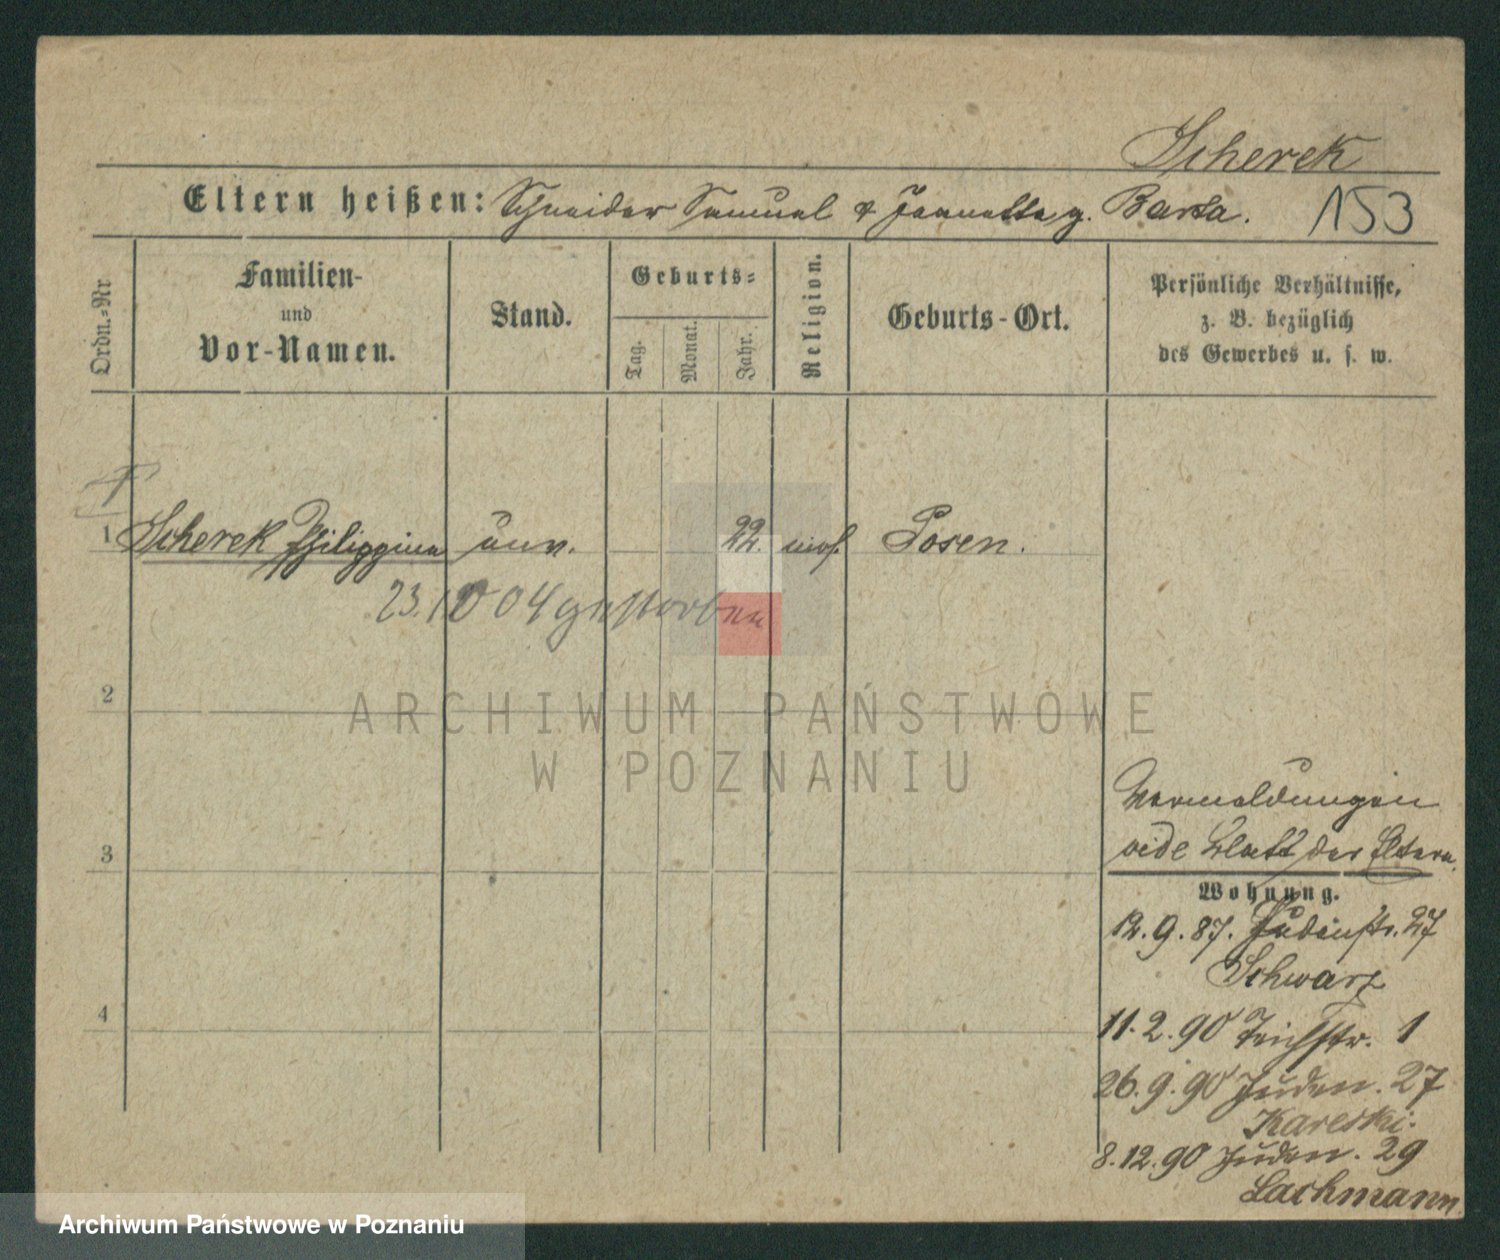 Scherek
Eltern heißen: Schneider Samuel & Jeannette g. Barta. 153
Ordn.-Nr
Familien-
und
Vor-Namen.
Stand.
Geburts-
Tag.
Monat.
Jahr.
Religion.
Geburts-Ort.
Persönliche Verhältnisse,
z. B. bezüglich
des Gewerbes u. s. w.
1 Scherek Philippina unv. 22. mos. Posen.
23.10 04 gestorben
2
ARCHIWUM PAŃSTWOWE
W POZNANIU
3
4
Vermeldungen
vide Blatt der Eltern.
Wohnung.
12.9.87. Judenstr. 27
Schwarz
11.2.90 Teichstr. 1
26.9.90 Juden. 27
Kareski.
8.12.90 Juden. 29
Lachmann.
Archiwum Państwowe w Poznaniu